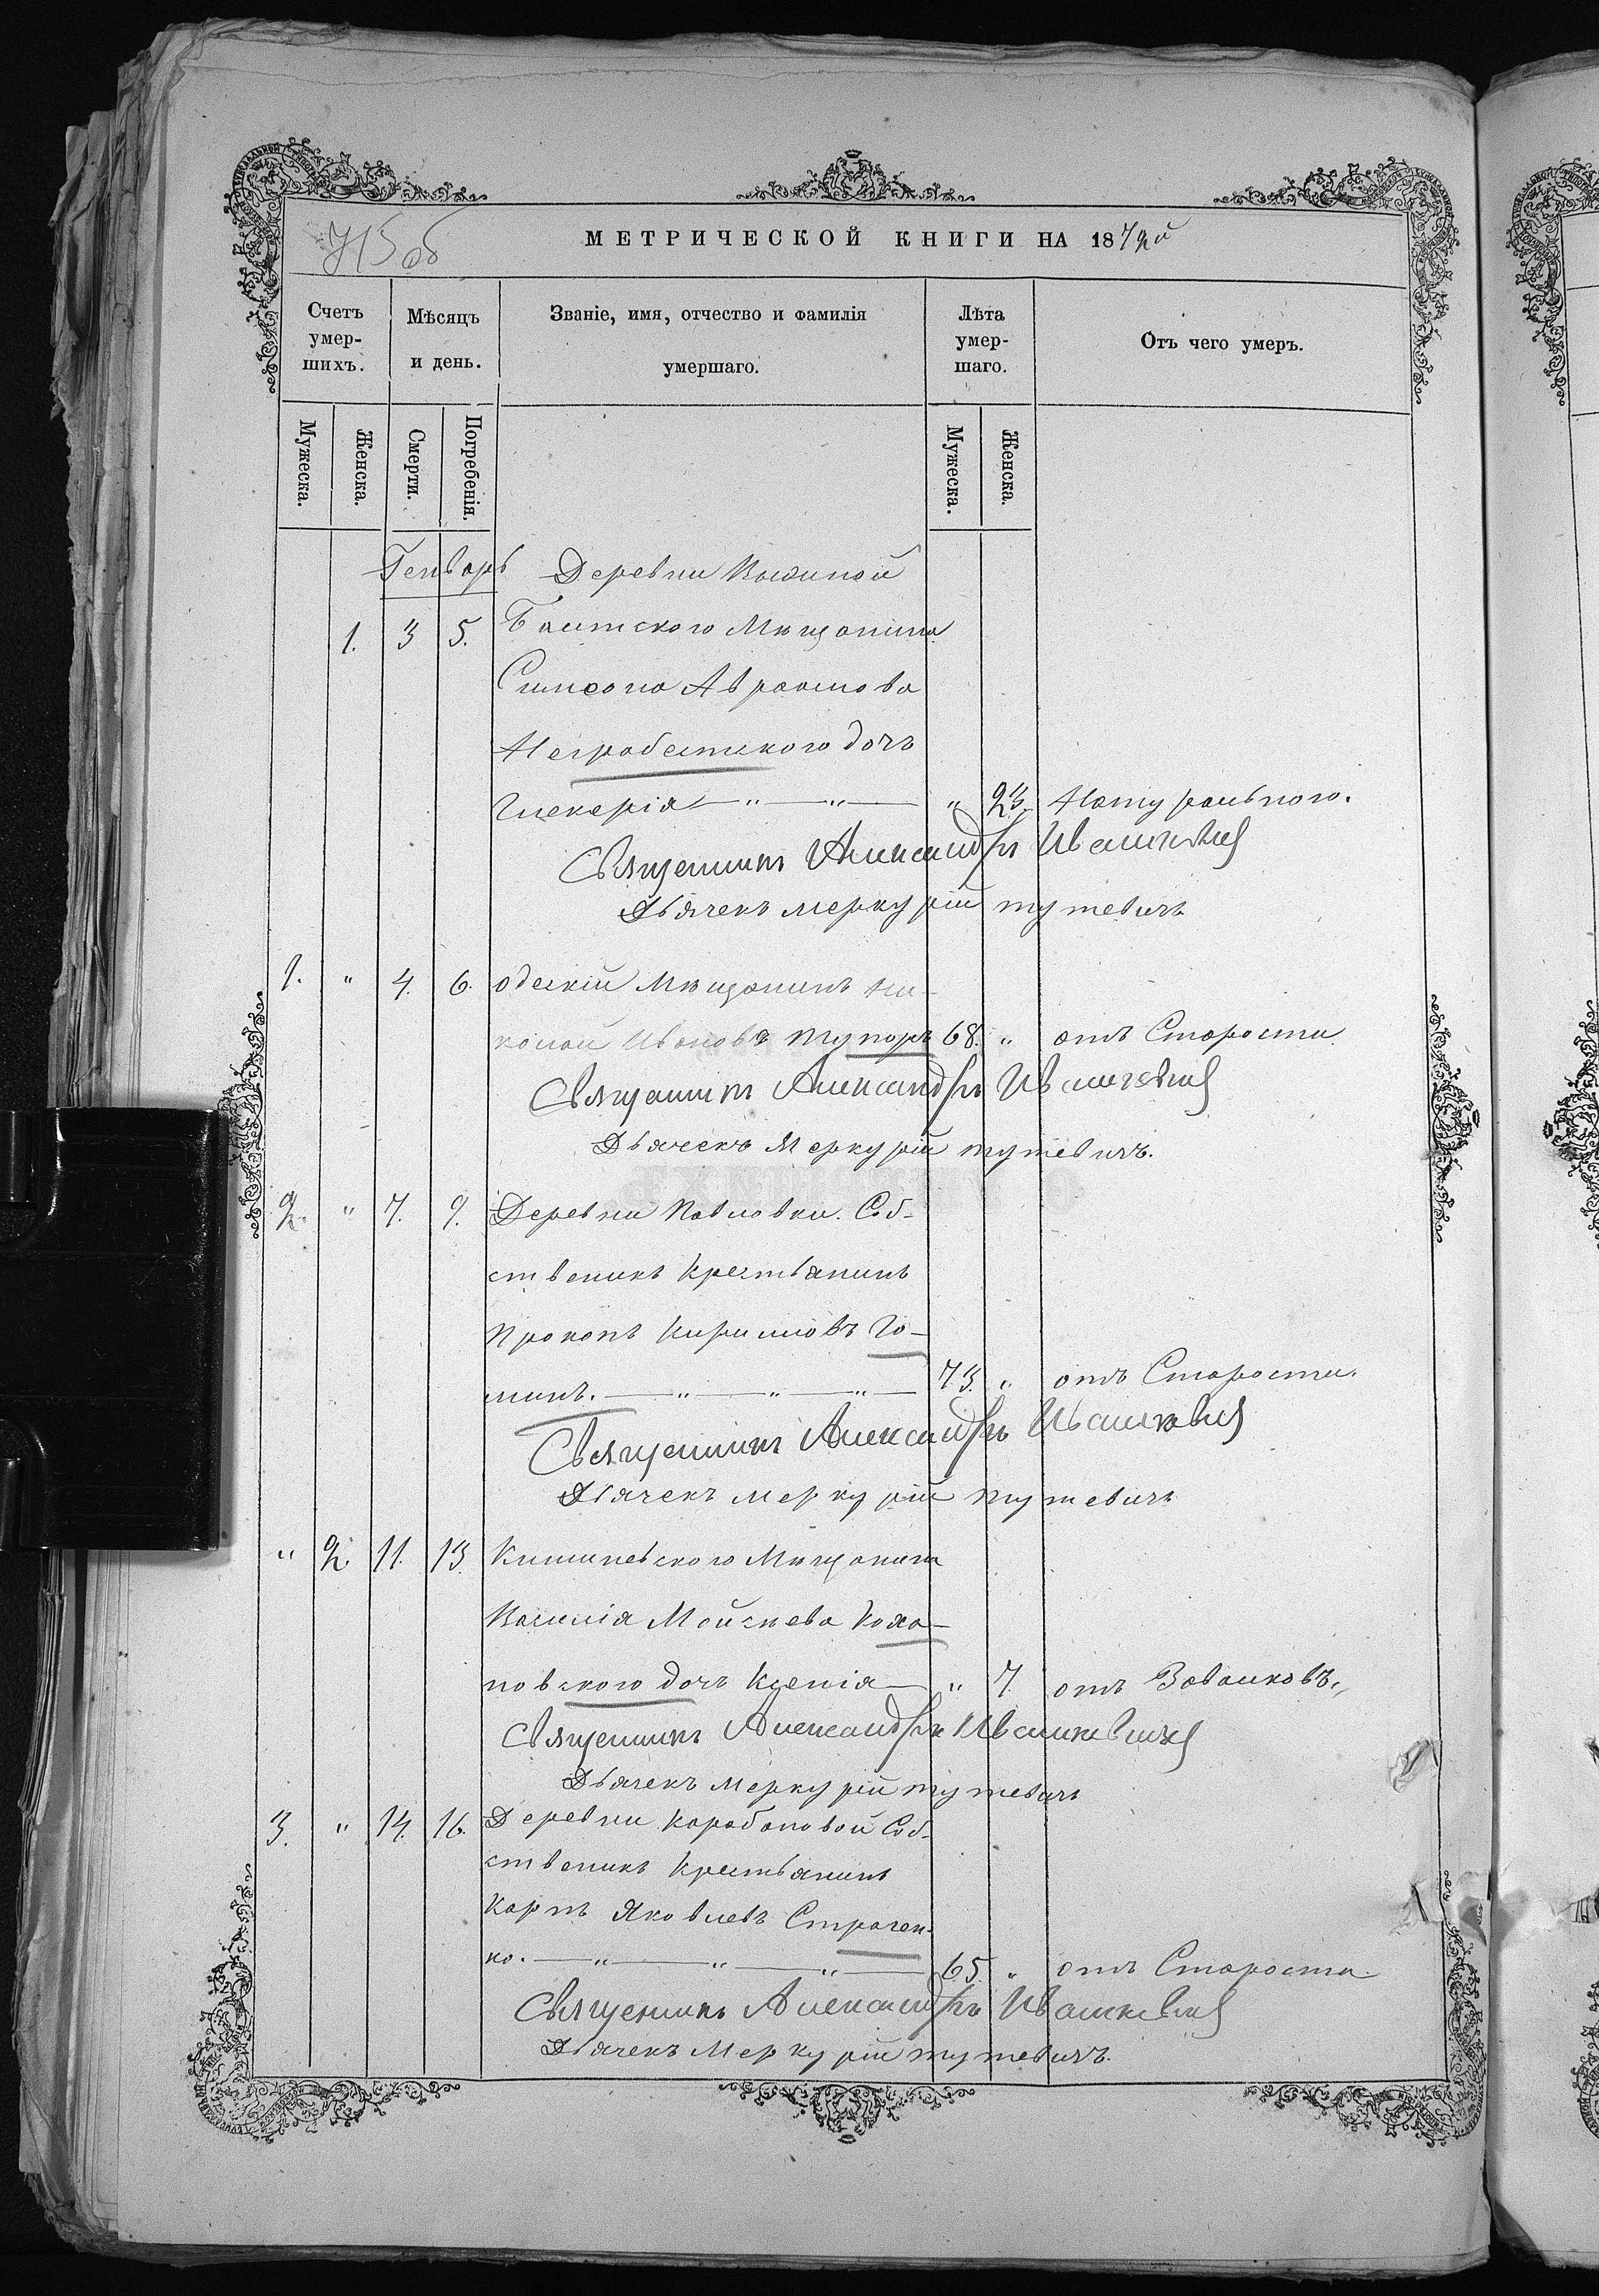 МЕТРИЧЕСКОЙ КНИГИ НА 1872й
Счетъ умер-шихъ.
Мѣсяцъ и день.
Званіе, имя, отчество и фамилія умершаго.
Лѣта умер-шаго.
Отъ чего умеръ.
Мужеска.
Женска.
Смерти.
Погребенія.
Мужеска.
Женска.
Генварь Деревни
1. 3 5. Балтского Мѣщанина
Симеона Авраамова
доча
Гликерія — " — " — " 23. Натуральнаго.
Священникъ Александръ Ивашкевичъ
Дьячекъ Меркурій Тутевичъ
1. " 4. 6. Одескій Мѣщанинъ Ни-
колай Ивановъ 68. " отъ Старости
Священникъ Александръ Ивашкевичъ
Дьячекъ Меркурій Тутевичъ.
2. " 7. 9. Деревни Павловки Соб-
ственикъ Крестьянинъ
Прокопъ Кириловъ Го-
минъ. — " — " — " — 73. " отъ Старости.
Священникъ Александръ Ивашкевичъ
Дьячекъ Меркурій Тутевичъ
" 2. 11. 13. Кишиневского Мѣщанина
Василія Мойсѣева Коха-
новского доча Ксенія — " 7. отъ Заваловъ.
Священникъ Александръ Ивашкевичъ
Дьячекъ Меркурій Тутевичъ
3. " 14. 16. Деревни Карабановой Соб-
ственикъ Крестьянинъ
Карпъ Яковлевъ Страчен-
ко. — " — " — " — 65. " отъ Старости.
Священикъ Александръ Ивашкевичъ
Дьячекъ Меркурій Тутевичъ.